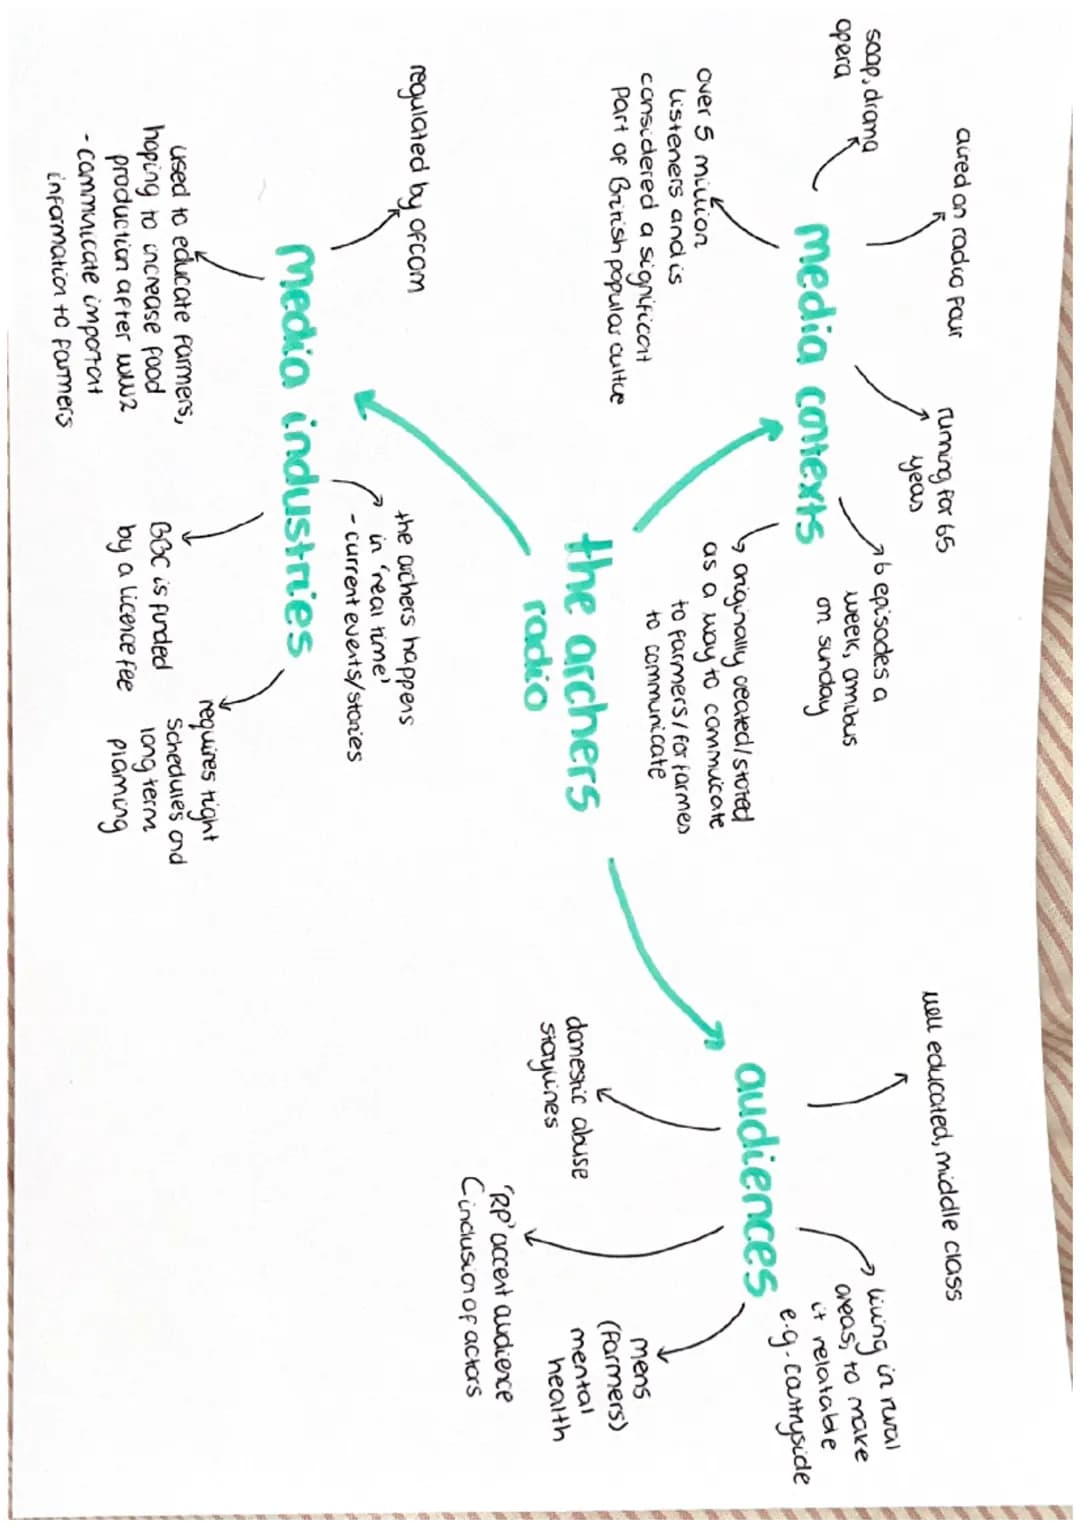 the archers
radio
media contexts
soap, drama
opera
aired on radio four
running for 65
years
6 episodes a
week, omnibus
on sunday
over 5 million
listeners and is
considered a significant
part of British popular culture
originally created/started
as a way to commuicate
to farmers/for farmes
to communicate
audiences
well educated, middle class
living in rural
areas, to make
it relatable
e.g. - contryside
domestic abuse
storylines
'RP' accent audience
inclusion of actors
mens
(farmers)
mental
health
media industries
regulated by ofcom
the archers happens
in 'real time'
- current events/stories
used to educate farmers,
hoping to increase food
production after ww2
- communicate important
information to farmers
BBC is funded
by a licence fee
requires tight
schedules and
long term
planning